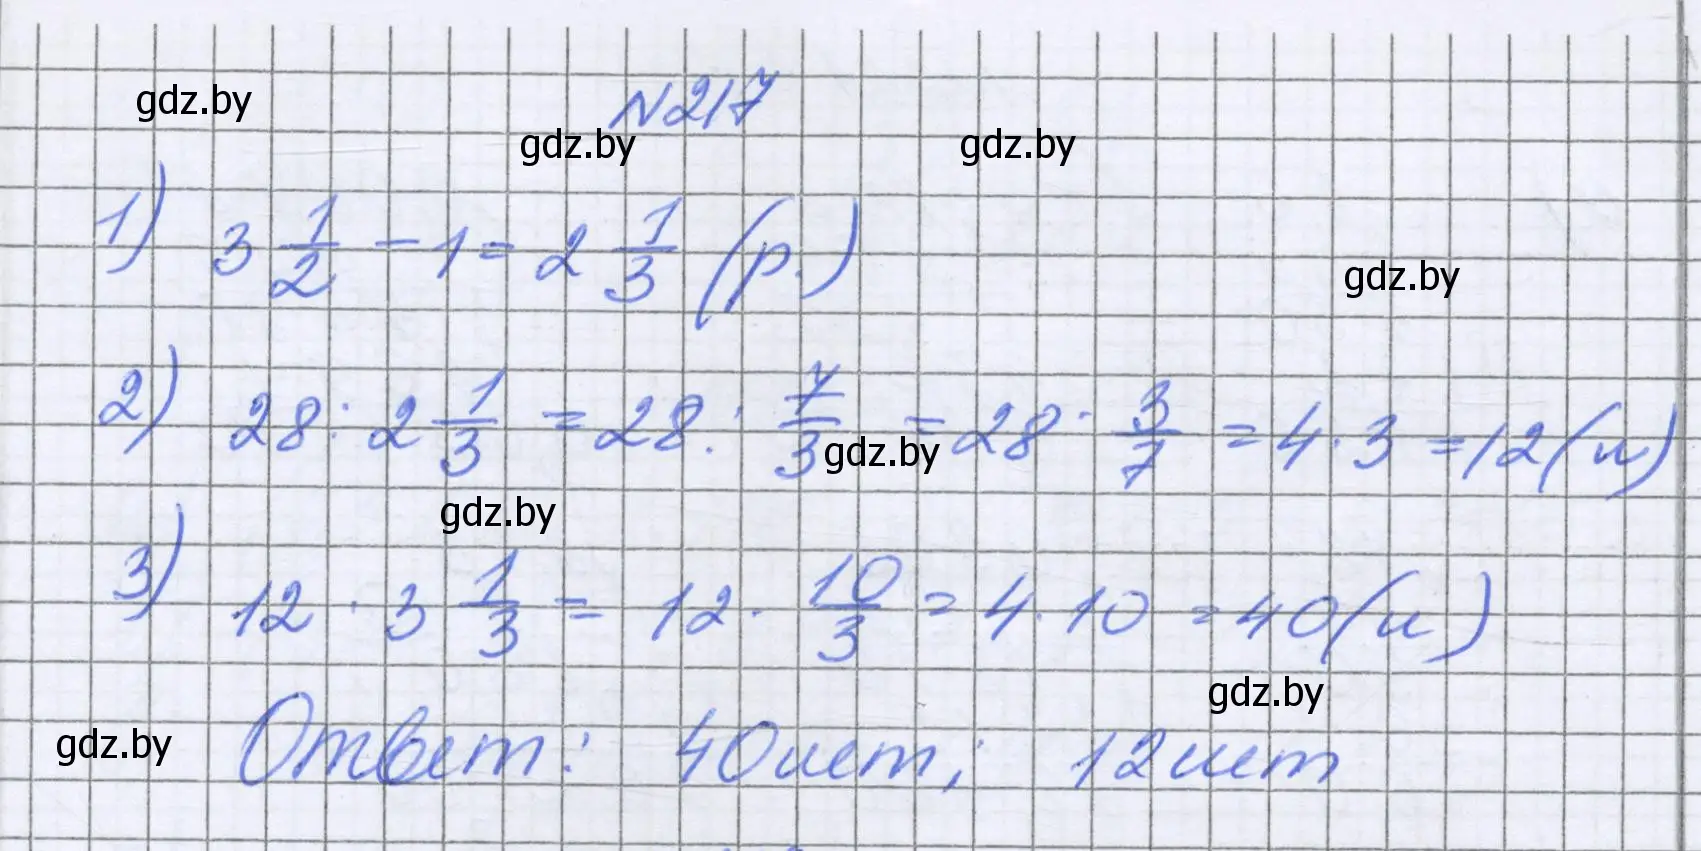 gdz.by
N217
gdz.by gdz.by
1) 3 1/2 - 1 = 2 1/3 (р.)
gdz.by
2) 28 : 2 1/3 = 28 : 7/3 = 28 · 3/7 = 4 · 3 = 12 (ш)
gdz.by
gdz.by
3) 12 · 3 1/3 = 12 · 10/3 = 4 · 10 = 40 (ш)
gdz.by
gdz.by
Ответ: 40 шт; 12 шт